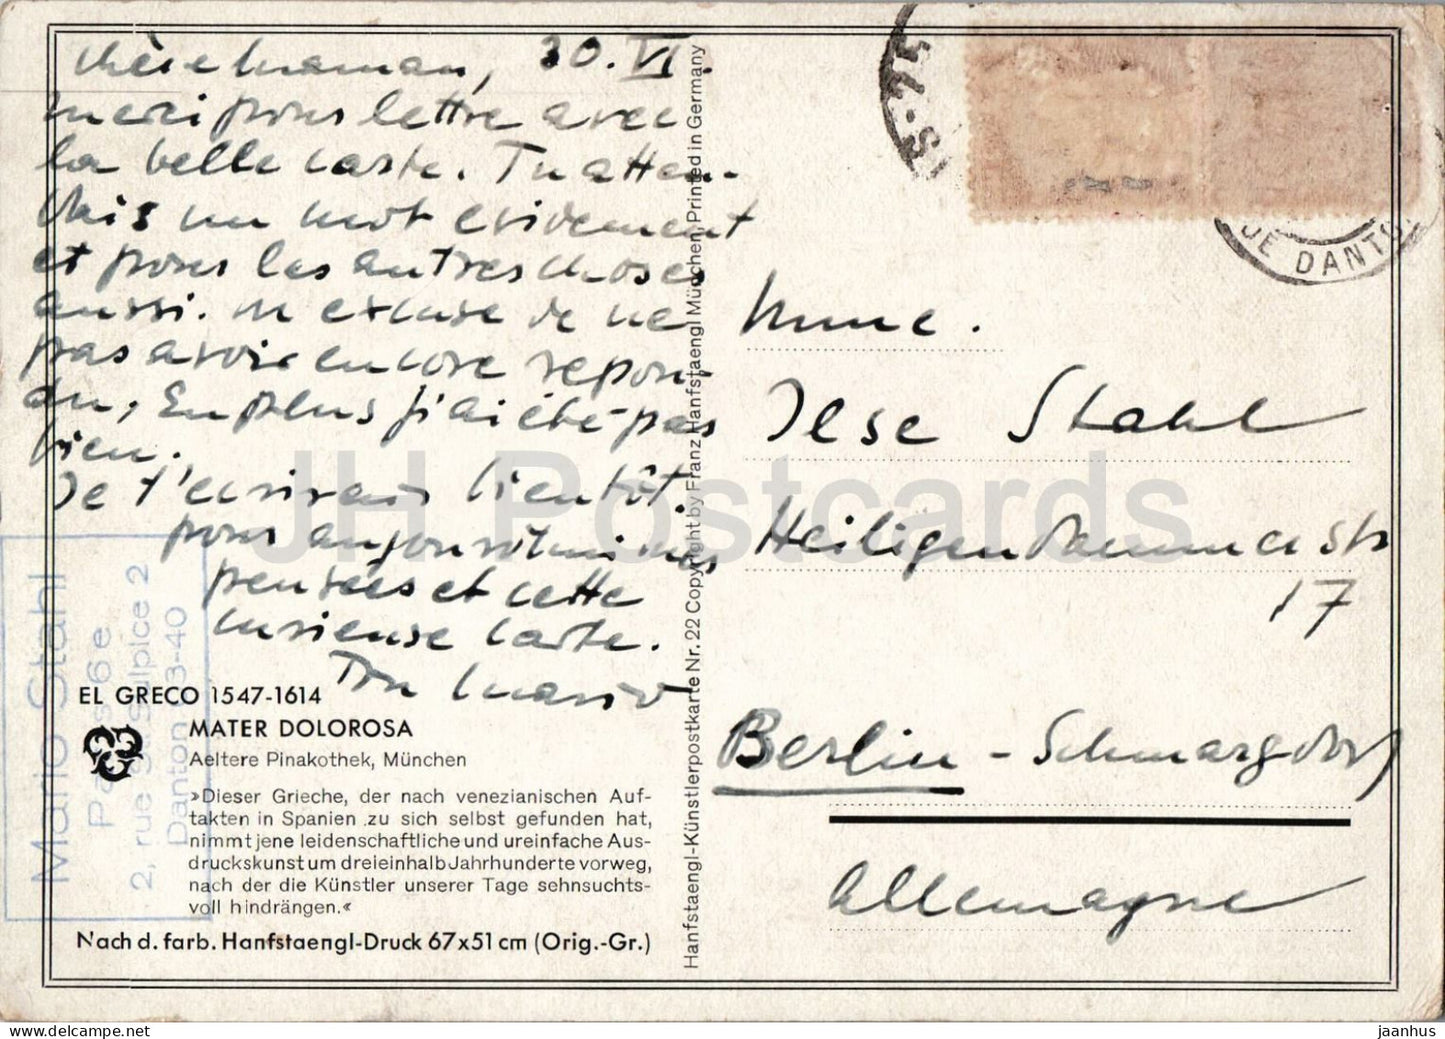 chère maman, 30. VI.
merci pour lettre avec
la belle carte. Tu atten-
dais un mot evidement
et pour les autres choses
aussi. m'excuse de ne
pas avoir encore repon-
du, En plus j'ai été pas
bien.
Je t'ecrirais bientôt.
pour aujourd'hui mes
pensées et cette
curieuse carte.
Ton Mario
Mario Stahl
Paris 6e
2, rue St Sulpice 2
Danton 03-40
EL GRECO 1547-1614
MATER DOLOROSA
Aeltere Pinakothek, München
»Dieser Grieche, der nach venezianischen Auf-
takten in Spanien zu sich selbst gefunden hat,
nimmt jene leidenschaftliche und ureinfache Aus-
druckskunst um dreieinhalb Jahrhunderte vorweg,
nach der die Künstler unserer Tage sehnsuchts-
voll hindrängen.«
Nach d. farb. Hanfstaengl-Druck 67x51 cm (Orig.-Gr.)
Hanfstaengl-Künstlerpostkarte Nr. 22 Copyright by Franz Hanfstaengl München, Printed in Germany
RUE DANTON
Mme.
Ilse Stahl
Heiligendammerstr
17
Berlin - Schmargdorf
Allemagne
JH Postcards
delcampe.net
jaanhus